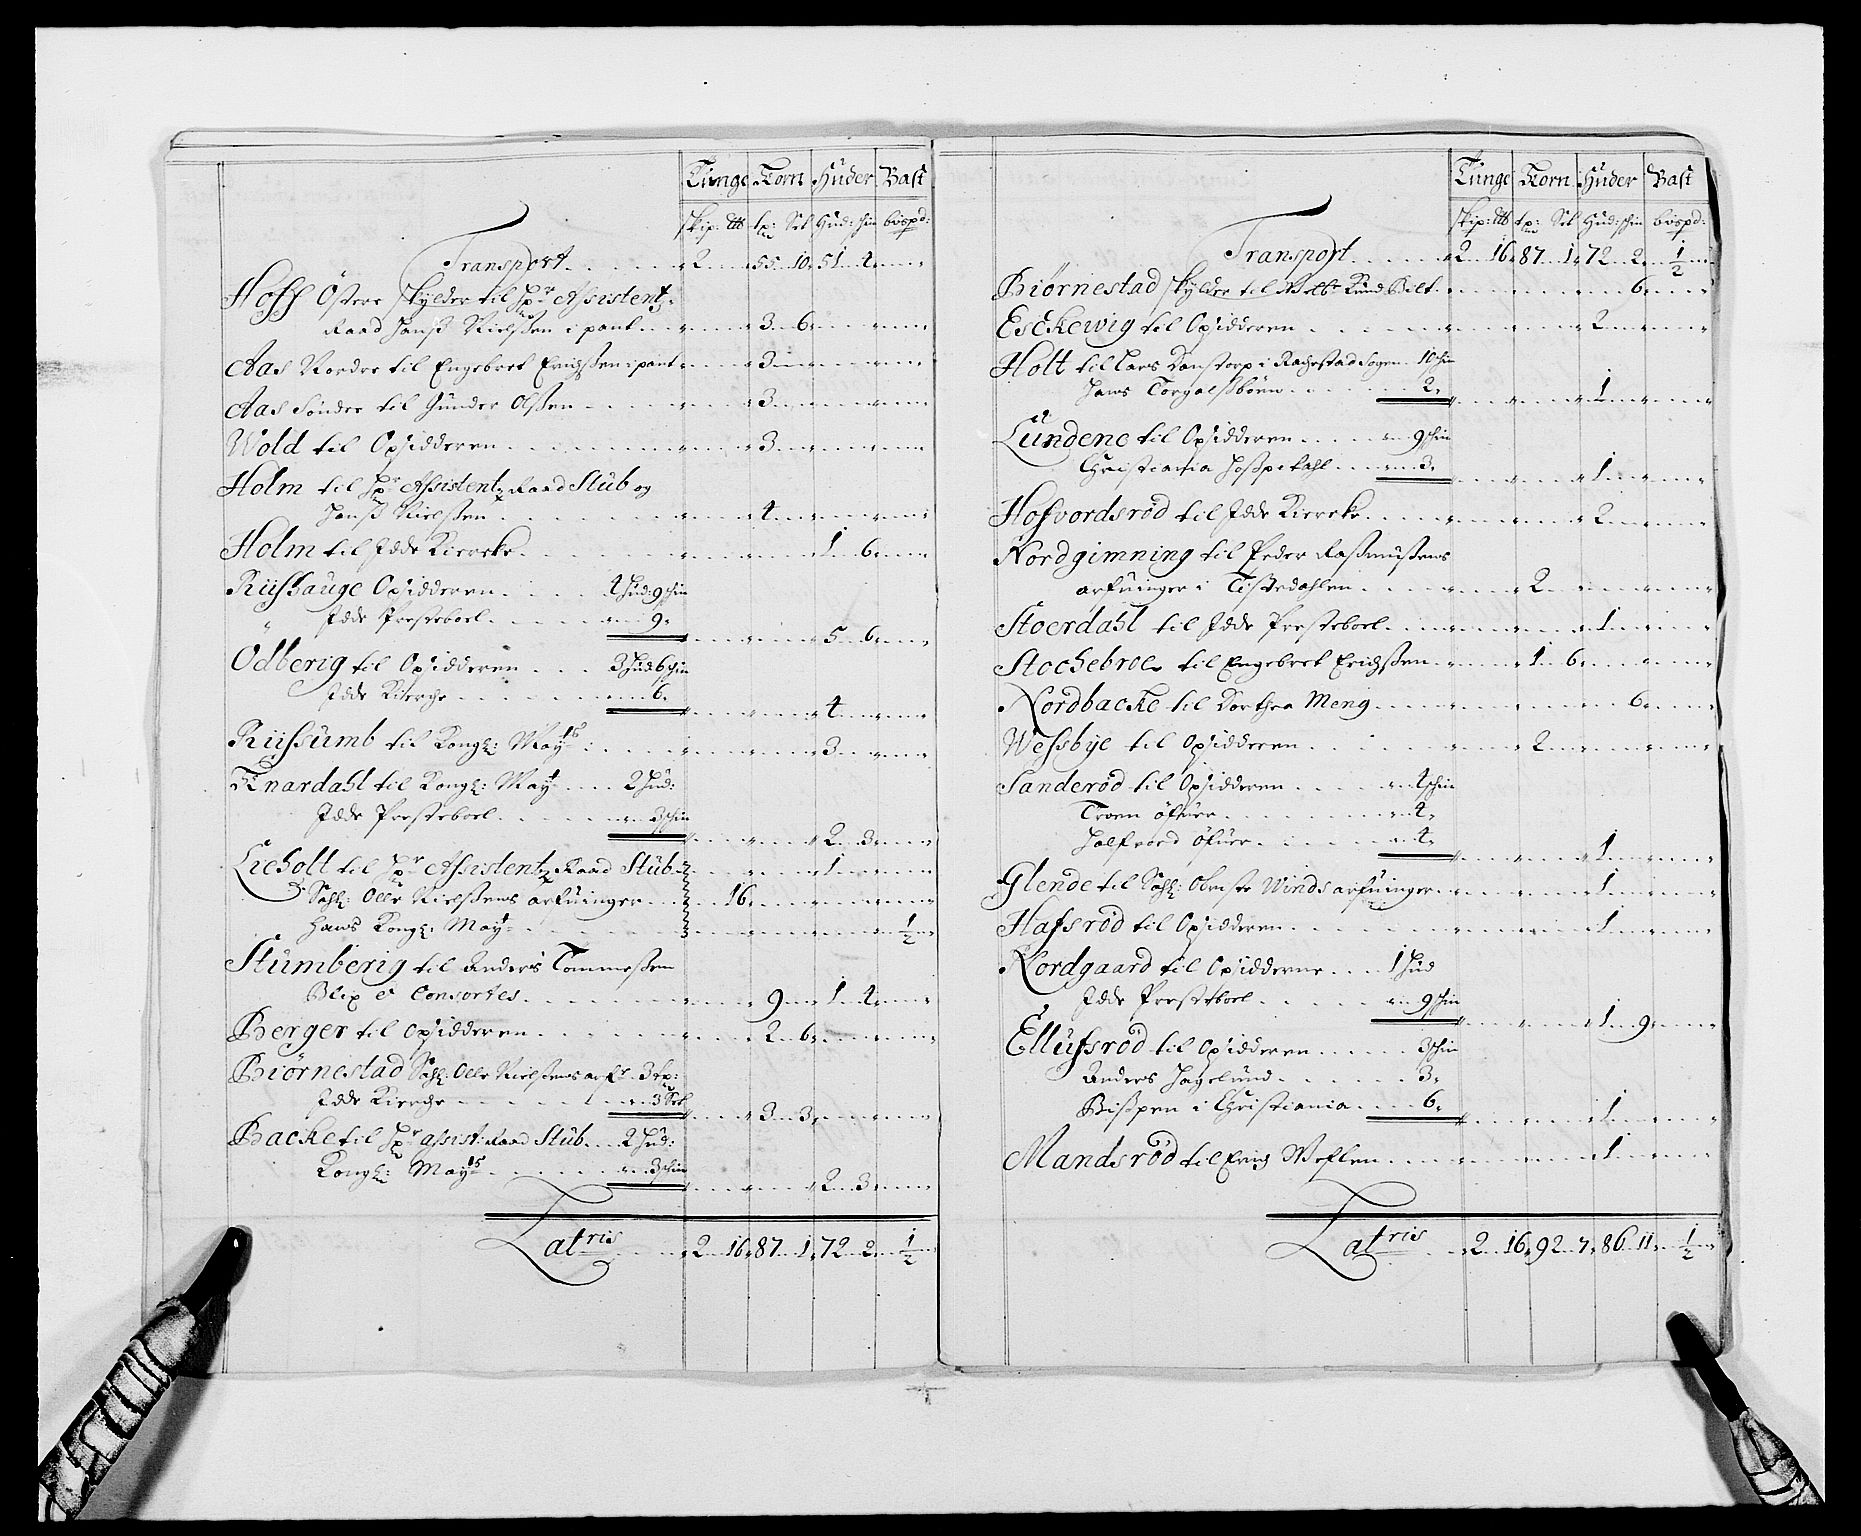 Tunge Korn Huder Bast
skip: ℔ tp: Set Hud: schin bòspd:
Transport 2 55 10 51 4
Hoff Østere skylder til Hr Assistentz
Raad Hanß Nielßen i pant 3 6
Aas Nordre til Engebret Erichßen i pant 3
Aas Søndre til Gunder Olßen 3
Wold til Opsidderen 3
Holm til Hr Assistentz Raad Stub og
Hanß Nielßen 4
Holm til Idde Kiercke 1 6
Riishauge Opsidderen 4 Hud: 9 schin
Idde Presteboel 9 5 6
Odberig til Opsidderen 3 Hud 6 schin
Idde Kierche 6 4
Riissumb til Kongl: Mayts 3
Knardahl til Kongl: Mayt 2 Hud:
Idde Presteboel 3 schin 2 3
Lieholt til Hr Assistentz Raad Stub 1
Sahl: Olle Nielßens arfuinger 16
Hans Kongl: Mayt 1/2
Stumberig til Anders Tommeßen
Blix & Consortes 9 1 4
Berger til Opsidderen 2 6
Biørnestad Sahl: Olle Nielßens arfr 3 tp:
Idde Kierche 3 Set 3 3
Backe til Hr assist: Raad Stub 2 Hud:
Kongl: Mayts 3 schin 2 3
Latris 2 16 87 1 72 2 1/2
Tunge Korn Huder Bast
skip: ℔ tp: Set Hud: schin bòspd:
Transport 2 16 87 1 72 2 1/2
Biørnestad skylder til Knud Bilt 6
Esckewig til Opsidderen 2
Holt til Lars Danstorp i Rachestad Sogen 10 schin
Hans Torgalsbøen 2 1
Lundene til Opsidderen 9 schin
Christiania Hoßpitahl 3 1
Hofvordsrød til Idde Kiercke 2
Nordgimning til Peder Raßmußens
arfuinger i Tistedahlen 2
Stoerdahl til Idde Presteboel 1
Stochebroe til Engebret Erichßen 1 6
Nordbacke til Dorthea Meng 6
Wessbye til Opsidderen 2
Sanderød til Opsidderen 4 schin
Troen øfuer 4
Halfvord øfuer 4 1
Glende til Sahl: Obriste Winds arfuinger 1
Hafsrød til Opsidderen 1
Nordgaard til Opsidderne 1 Hud
Idde Presteboel 9 schin 1 9
Ellufsrød til Opsidderen 3 schin
Anders Hagelund 3
Bißpen i Christiania 6 1
Mandsrød til Erich Weflen 1
Latris 2 16 92 7 86 11 1/2